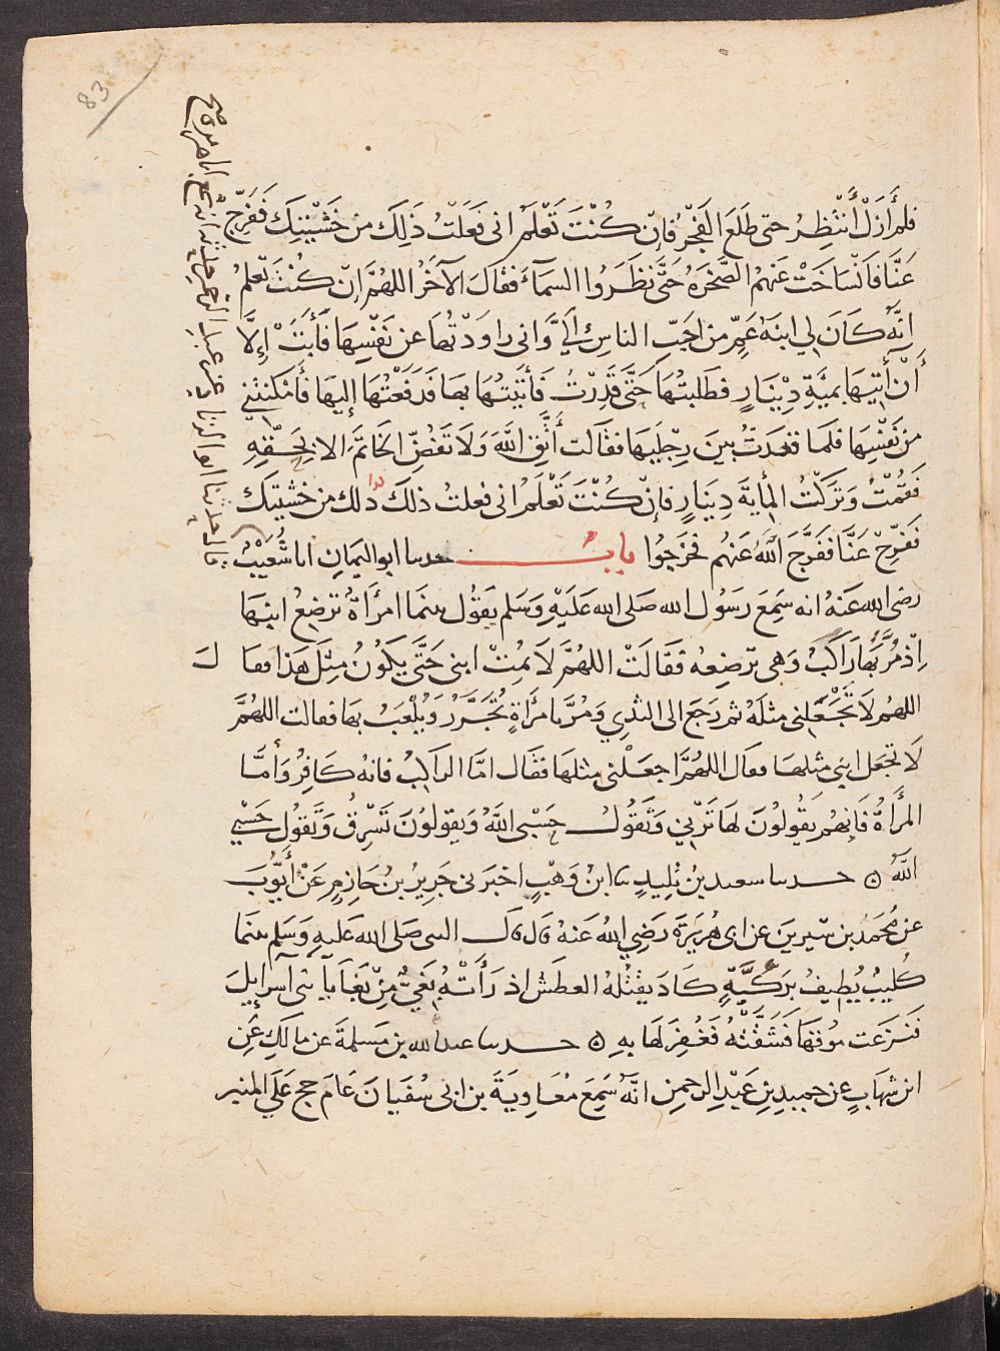 83
فلم أَزَلْ أَنْتَظِرُ حتى طَلَعَ الفَجْرُ فإن كُنْتَ تَعْلَمُ انى فَعَلْتُ ذَلِكَ من خَشْيَتِكَ فَفَرِّج
عَنَّا فَانْسَاخَتْ عَنهُمُ الصَّخرَةُ حَتَّى نَظَرُوا السمآءَ فقَالَ الآخَرُ اللهُمَّ اِنْ كُنْتَ تَعلَمُ
اِنَّهُ كَانَ لِي ابنَةُ عَمٍّ من احَبِّ الناسِ إِلَيَّ وَانى راوَدْتُهَا عن نَفْسِهَا فَأَبَتْ إِلَّا
أن آتِيَهَا بميَّةِ دِيْنَارٍ فطَلبتُهَا حَتَّى قَدِرْتُ فَأَتَيتُهَا بهَا فَدَفَعْتُهَا إليهَا فَأَمْكَنَتْنِي
من نَفْسِهَا فلمَا قعَدتُ بينَ رِجْلَيهَا فقَالت أتَّقِ اللَّهَ وَلَا تَفُضَّ الخَاتَمَ الا بِحَقِّهِ
فَقُمْتُ وَتَرَكْتُ المايةَ دِينَارٍ فإنْ كُنْتَ تَعْلَمُ انى فعلتُ ذلكَ ذلك من خشيتِكَ
فَفَرِّجْ عَنَّا ففَرَّجَ اللَّهُ عَنهُم فخرَجُوا باب حدثنا ابو اليَمانِ انا شُعَيْبٌ
قال حدثنا ابو الزناد عن عبد الرحمن حدثه انه سمع ابا هريرة
رضى الله عَنهُ انه سَمِعَ رَسُولَ الله صَلى الله عَلَيْهِ وَسَلم يَقُول بينما امرَأةٌ تُرضِعُ ابنَهَا
اِذْ مَرَّ بِهَا رَاكِبٌ وَهى تُرضِعُه فقَالَتْ اللهُمَّ لَا تُمِتْ ابنى حَتَّى يكُونَ مِثلَ هَذا فقا لَ
اللهُم لَا تَجْعَلنى مثلَهُ ثم رَجَع الى الثدِي وَمُرَّ بامرَأةٍ تُجَرَّرُ وَيُلْعَبُ بهَا فقالت اللهُمَّ
لَا تجعَل ابنى مثلهَا فقال اللهُمَّ اجعَلْنى مثلهَا فقَال امَّا الراكِبُ فانهُ كَافِرٌ وَأَمَّا
المرأَةُ فَإنهُم يَقُولُونَ لهَا تَزْنِي وَتَقُولُ حَسْبى اللَّهُ وَيَقولُونَ تَسْرِقُ وَتَقُول حَسْبِي
اللَّهُ ۝ حدثنا سعيد بن تَلِيدٍ ثنا ابنُ وَهْبٍ اخبَرَنى جَرِيرُ بنُ حَازِمٍ عَنْ أيُّوبَ
عن مُحَمَّد بن سِيرينَ عن ابى هُرَيرَةَ رَضِي اللهُ عَنهُ قال قال النبى صَلى الله عَليهِ وَسَلم بينَما
كُلَيبٌ يُطِيفُ بِرَكِيَّةٍ كَادَ يقتُلهُ العطَش اذ رَأَتْهُ بَغِيٌّ مِنْ بَغَايَا بنى اسرايلَ
فَنزَعت مُوقهَا فَسَقَتْهُ فَغُفِرَ لَهَا بهِ ۝ حدثنا عبد الله بن مَسلمةَ عن مالكٍ عَنِ
ابن شهَابٍ عن حميدِ بنِ عَبْدِ الرحمنِ انَّهُ سَمِعَ مُعَاوِيَةَ بن ابى سُفيانَ عَامَ حج عَلَى المنبر